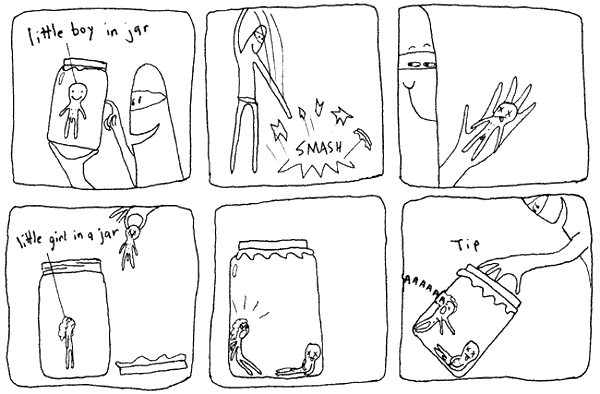 little boy in jar
SMASH
little girl in a jar
Tip
AAAAAAA